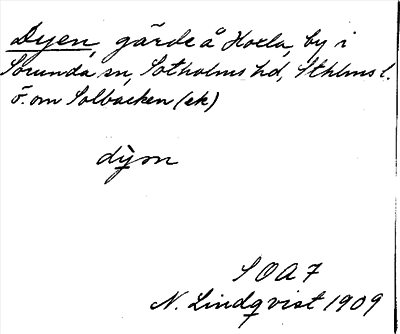 Dyen, gärde å Hoxla, by i
Sorunda sn, Sotholms hd, Sthlms l.
ö. om Solbacken (ek)
dỳon
SOA7
N. Lindqvist 1909